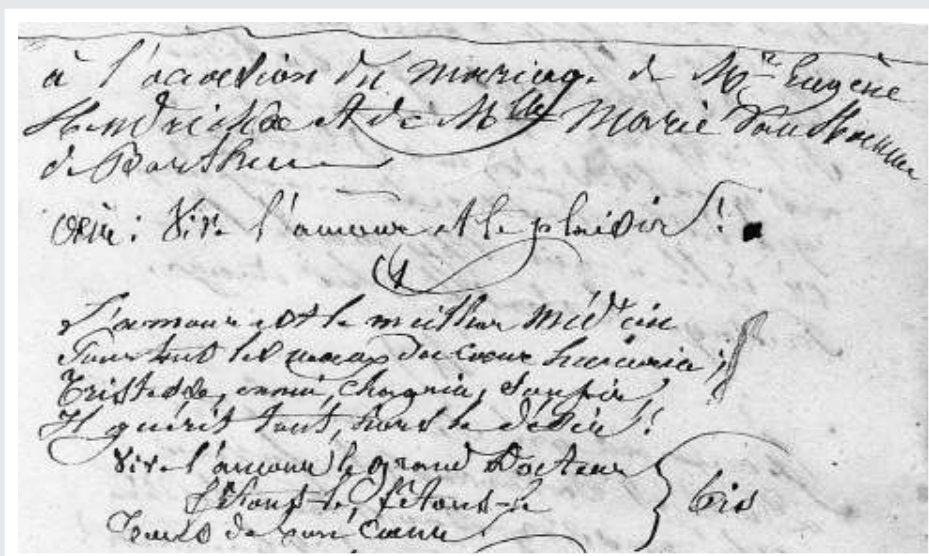 à l'occasion du mariage de Mr Eugène
Hendrickx et de Mlle Marie Van
de
air: Vive l'amour et le plaisir!
L'amour est le meilleur médecin
Pour tous les maux du cœur humain;
Tristesse, ennui, chagrin, soupir,
Il guérit tout, hors le désir!
Vive l'amour le grand Docteur
Fêtons-le, fêtons-le
Tous de tout Cœur
bis